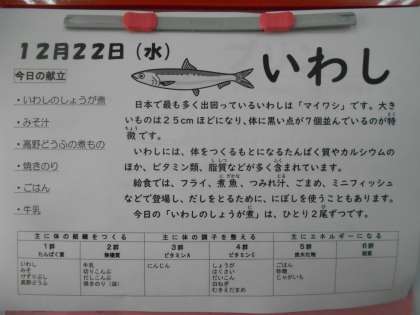 12月22日（水）
いわし
今日の献立
・いわしのしょうが煮
・みそ汁
・高野どうふの煮もの
・焼きのり
・ごはん
・牛乳
日本で最も多く出回っているいわしは「マイワシ」です。大き
いものは25cmほどになり、体に黒い点が7個並んでいるのが特
徴です。
いわしには、体をつくるもとになるたんぱく質やカルシウムの
ほか、ビタミン類、脂質などが多く含まれています。
給食では、フライ、煮魚、つみれ汁、ごまめ、ミニフィッシュ
などで登場し、だしをとるために、にぼしを使うこともあります。
今日の「いわしのしょうが煮」は、ひとり2尾ずつです。
主に体の組織をつくる 主に体の調子を整える 主にエネルギーになる
1群 2群 3群 4群 5群 6群
たんぱく質 無機質 ビタミンA ビタミンC 炭水化物 脂質
いわし 牛乳 にんじん しょうが ごはん
みそ 切りこんぶ はくさい 砂糖
けずりぶし だしこんぶ だいこん じゃがいも
高野どうふ 焼きのり 白ねぎ
むきえだまめ